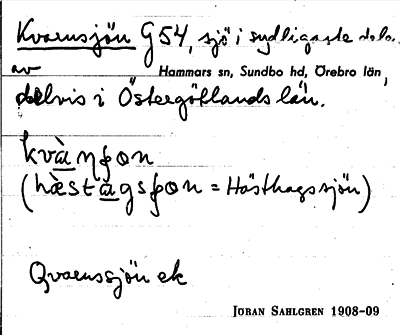 Kvarnsjön G54, sjö i sydligaste dela
av Hammars sn, Sundbo hd, Örebro län,
delvis i Östergötlands län.
kvàηʃon
(hæstàgsʃon = Hästhagssjön)
Qvarnssjön ek
JÖRAN SAHLGREN 1908-09